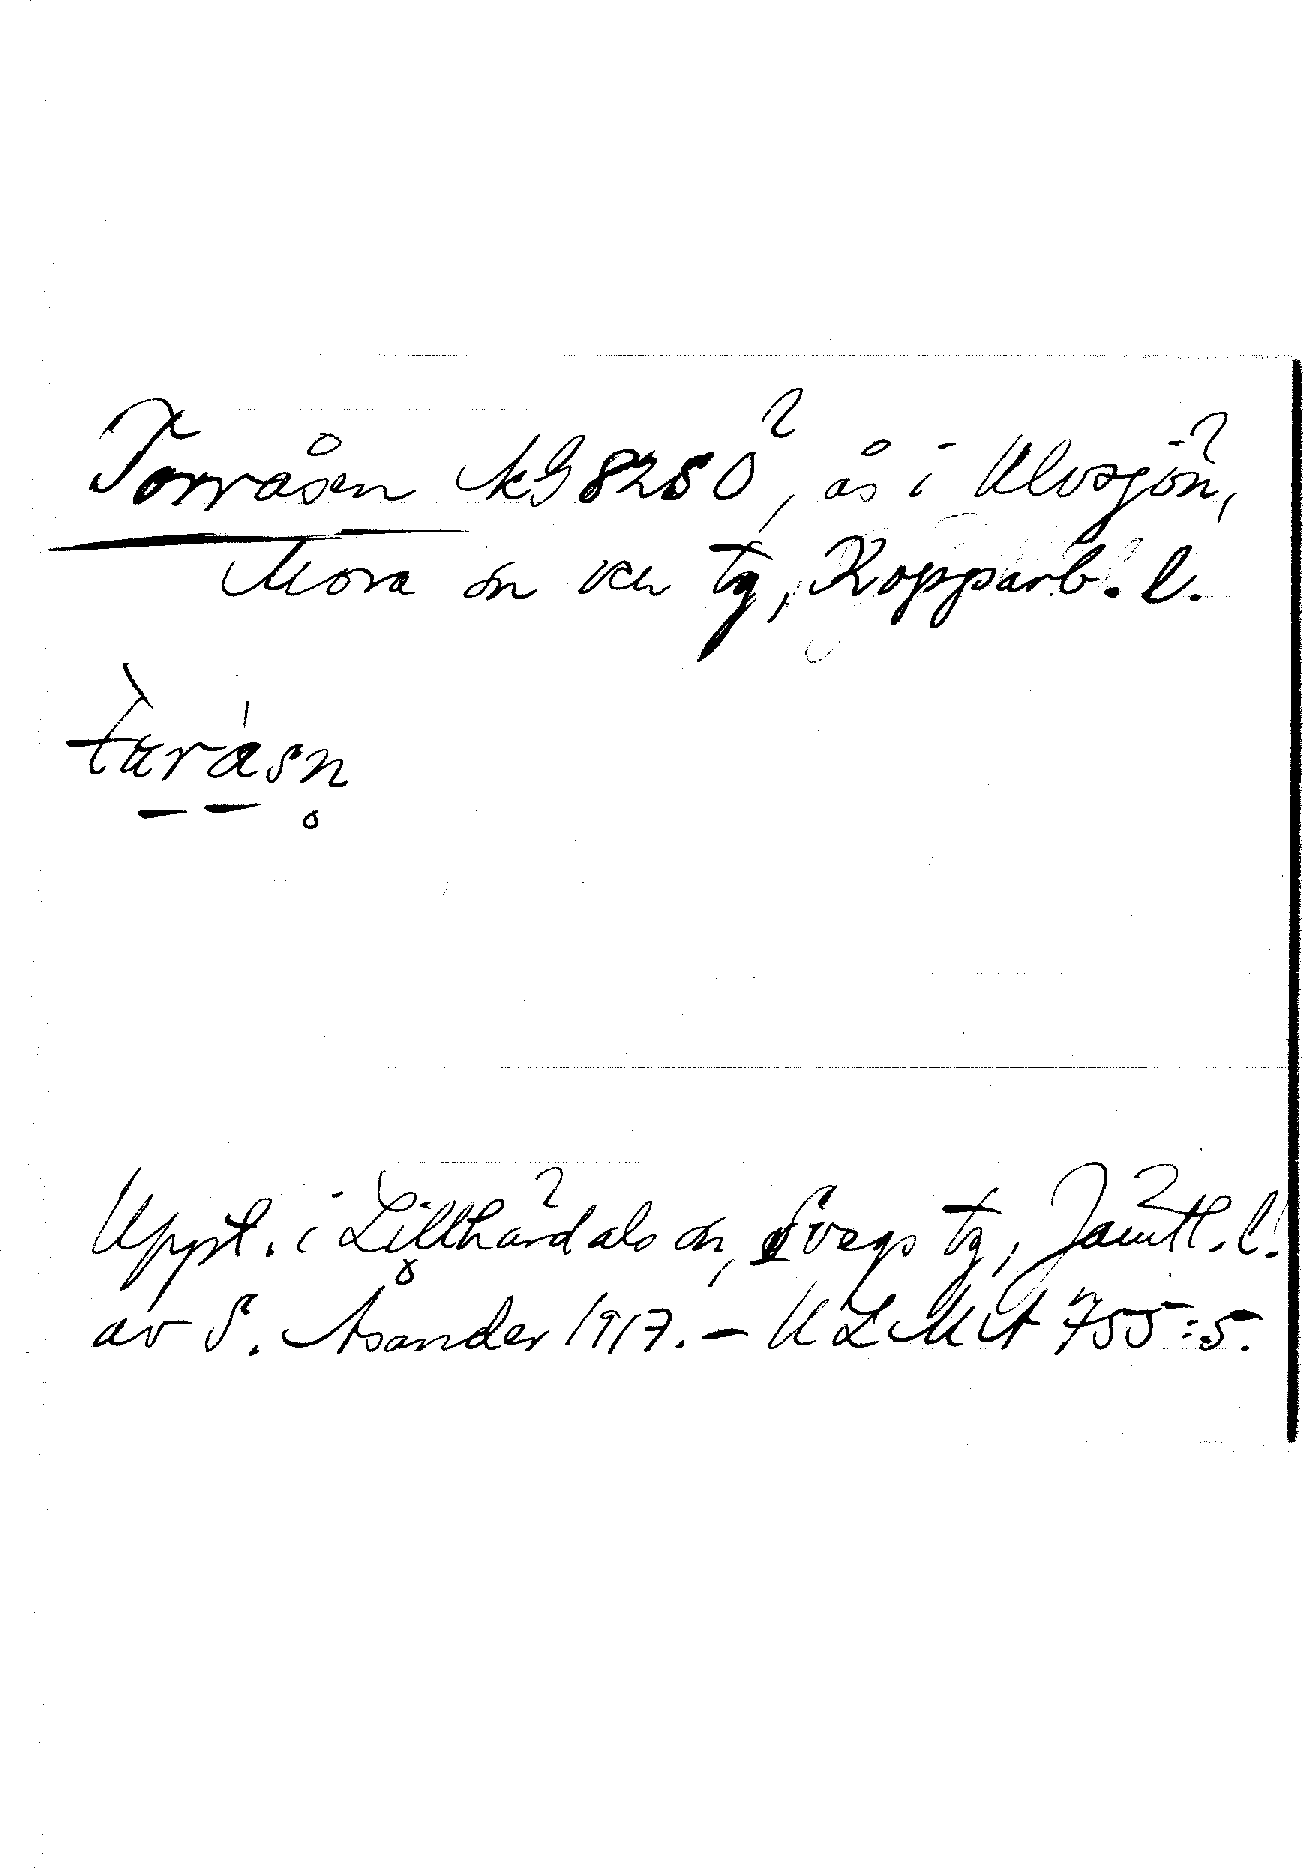 Torråsen NG 8280?, ås i Ulvsjön,
Mora sn och tg, Kopparb. l.
tɑråsn̥
Uppt. i Lillhärdals sn, Svegs tg, Jämtl. l.
av S. Åsander 1917. – ULMA 755:5.